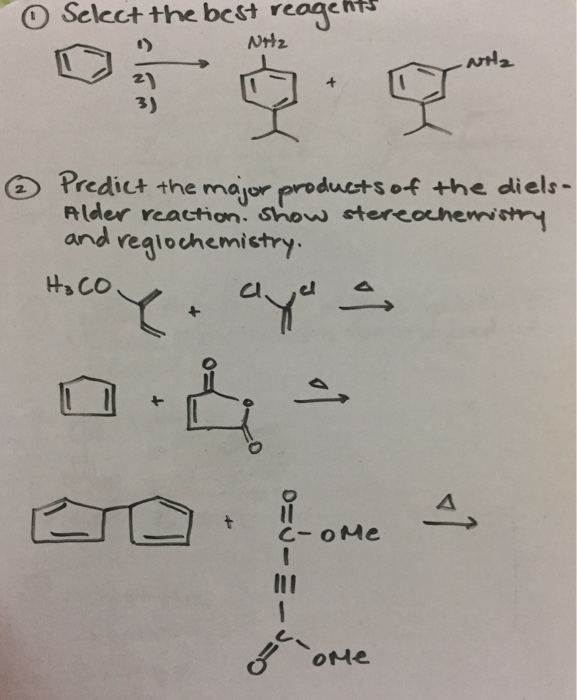 ① Select the best reagents
1)
2)
3)
NH2
+
NH2
② Predict the major products of the diels-
Alder reaction. Show stereochemistry
and regiochemistry.
H3CO
+
Cl
Cl
Δ
+
O
O
O
Δ
+
O
C-OMe
C
O
OMe
Δ